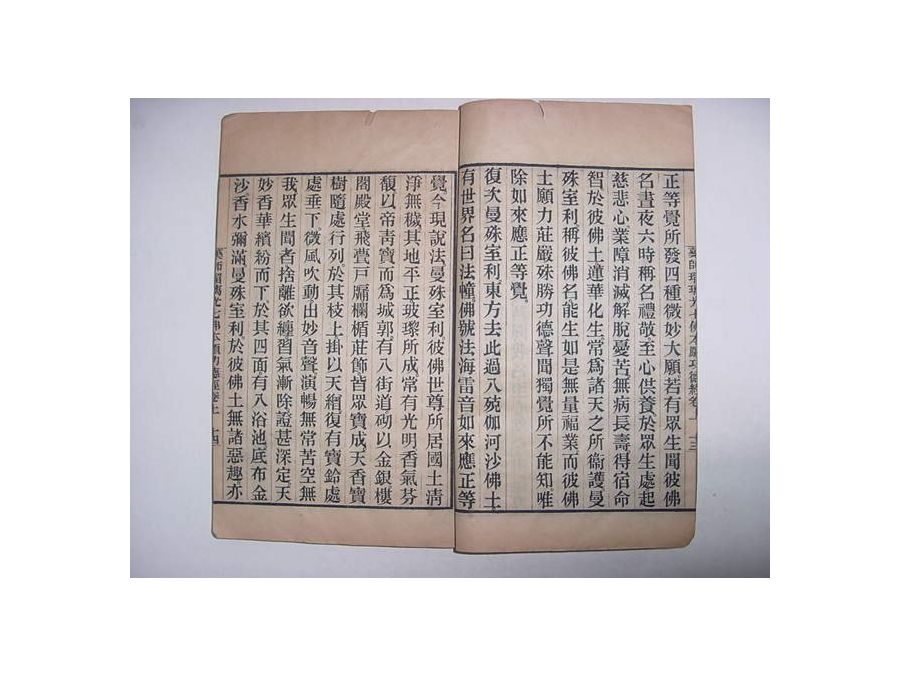 正等覺所發四種微妙大願若有眾生聞彼佛
名晝夜六時稱名禮敬至心供養於眾生處起
慈悲心業障消滅解脫憂苦無病長壽得宿命
智於彼佛土蓮華化生常爲諸天之所衞護曼
殊室利稱彼佛名能生如是無量福業而彼佛
土願力莊嚴殊勝功德聲聞獨覺所不能知唯
除如來應正等覺
復次曼殊室利東方去此過八殑伽河沙佛土
有世界名曰法幢佛號法海雷音如來應正等
藥師琉璃光七佛本願功德經卷上 十三
覺今現說法曼殊室利彼佛世尊所居國土淸
淨無穢其地平正玻瓈所成常有光明香氣芬
馥以帝靑寶而爲城郭有八街道砌以金銀樓
閣殿堂飛甍戸牖欄楯莊飾皆眾寶成天香寶
樹隨處行列於其枝上掛以天繒復有寶鈴處
處垂下微風吹動出妙音聲演暢無常苦空無
我眾生聞者捨離欲纏習氣漸除證甚深定天
妙香華繽紛而下於其四面有八浴池底布金
沙香水彌滿曼殊室利於彼佛土無諸惡趣亦
藥師琉璃光七佛本願功德經卷上 十四